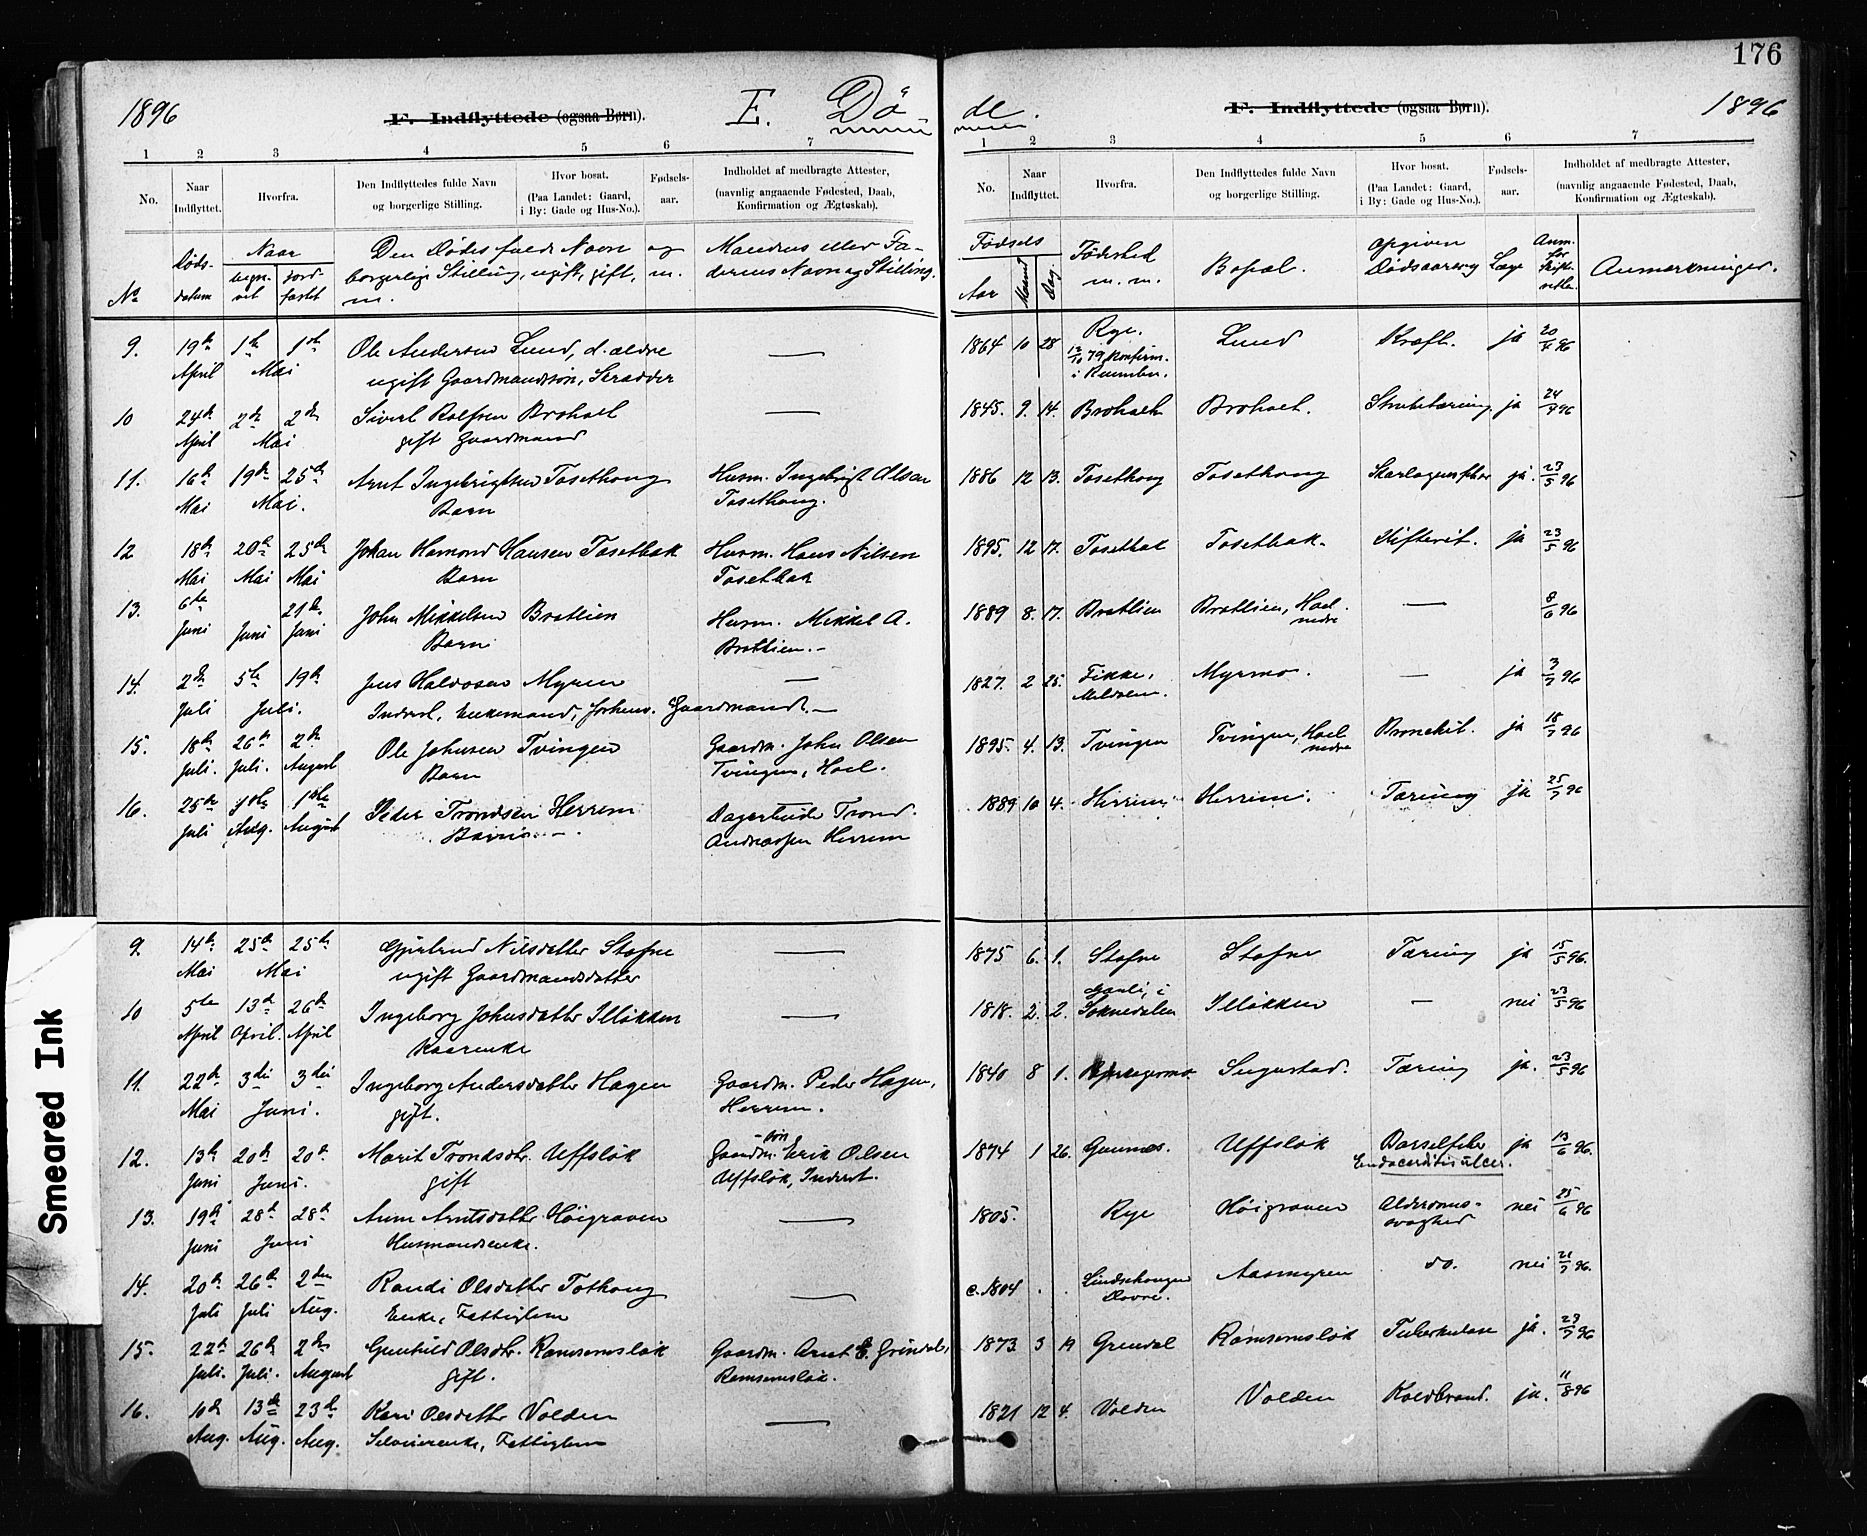 176
1896 F. Indflyttede (ogsaa Børn). E. Døde. F. Indflyttede (ogsaa Børn). 1896
1 2 3 4 5 6 7 1 2 3 4 5 6 7
No. Naar Indflyttet. Hvorfra. Den Indflyttedes fulde Navn og borgerlige Stilling. Hvor bosat. (Paa Landet: Gaard, i By: Gade og Hus-No.). Fødsels-aar. Indholdet af medbragte Attester, (navnlig angaaende Fødested, Daab, Konfirmation og Ægteskab).
No. Naar Indflyttet. Hvorfra. Den Indflyttedes fulde Navn og borgerlige Stilling. Hvor bosat. (Paa Landet: Gaard, i By: Gade og Hus-No.). Fødsels-aar. Indholdet af medbragte Attester, (navnlig angaaende Fødested, Daab, Konfirmation og Ægteskab).
No Døds-datum Naar jord-fæstet Den Dødes fulde Navn og borgerlige Stilling, ugift, gift, m. m. Mandens eller Faderens Navn og Stilling.
Fødsels Aar Maaned Dag Fødested m. m. Bopæl. opgiven Dødsaarsag Læge Anm. for Skifteretten Anmærkninger.
9. 19de 1ste 1ste Ole Andersen Lund, d. ældre — 1864 10 28 Rye. Lund Kræft. ja 20/4 96
April Mai ugift Gaardmandssøn, Skrædder 12/10 79 Konfirm. i
10 24de 2den 2den Sivert Rolfsen — 1845. 9. 14. ja 24/4 96
April Mai gift Gaardmand
11. 16de 19de 25de Arnt Ingebrigtsen Tosethoug Husm. Ingebrigt Olsen 1886 12 13. Tosethoug Tosethoug ja. 23/5 96
Mai Mai. Barn Tosethoug.
12 18de 20de 25de Johan Hamond Hansen Tosetbak Husm. Hans Nilsen 1895. 12 17. Tosetbak Tosetbak. Difterit. ja 23/5 96
Mai Mai Mai Barn Tosetbak
13. 6te 21de John Mikkelsen Bratlien Husm. Mikkel A. 1889 8. 17. Bratlien Bratlien, Hoel nedre — 8/6 96
Juni Juni Juni Barn Bratlien.
14. 2den 5te 19de Jens Halvorsen Myren — 1827. 2 25. Fikke, Myrmo. — ja 3/7 96
Juli Juli. Inderst, Enkemand, forhenv. Gaardmand. Meldalen.
15. 18de 26de 2den Ole Johnsen Tvingen Gaardm. John Olsen 1895. 4. 13. Tvingen Tvingen, Hoel nedre Bronchit. ja 18/7 96
Juli. Juli. August Barn Tvingen, Hoel.
16. 25de 1ste 1ste Peder Trondsen Herrem Trond 1889 10 4. Herrem Herrem. Tæring ja 25/7 96
Juli Aug. August Barn. Andreassen Herrem
9. 14de 25de 25de Gjertrud Nilsdatter Stafne — 1875 6. 1. Stafne Stafne Tæring ja 15/5 96.
Mai Mai ugift Gaardmandsdatter
10 5te 13de 26de Ingeborg Johnsdatter Illøkken — 1818. 2. 2. i Soknedalen Illøkken — nei 23/5 96
April April. April Kaarenke
11. 22de 3die 3die Ingeborg Andersdatter Hagen Gaardm. Peder Hagen, 1840 8 1. Tæring ja. 23/5 96
Mai Juni. gift. Herrem.
12. 13de 20de 20de Marit Trondsdtr. Uffsløk Gaardm.-søn Erik Olsen 1874 1 26. Gunnes. Uffsløk Barselfeber ja 13/6 96.
Juni Juni. gift Uffsløk, Inderst. Endocarditis ulcer.
13. 19de 28de 28de Anne Arntsdatter Høigraven — 1805. Rye Høigraven Alderdoms-svaghed nei 25/6 96
Juni Juni Husmandsenke.
14. 20de 26de 2den Randi Olsdatter Tothoug — c. 1804 Dovre. Aasmyren do. nei 21/7 96.
Juli Juli Aug. Enke, Fattiglem
15. 22de 26de 2den Gunhild Olsdtr. Ramsemsløk Gaardm. Arnt E. Grindal, 1873 3 19 Grindal Ramsemsløk Tuberkulose ja. 23/7 96
Juli. Juli. August gift. Ramsemsløk.
16. 10de 13de 23de Kari Olsdatter Volden — 1821 12 4. Volden Volden Koldbrand. ja. 11/8 96
Aug. Aug. Aug. Fattiglem
Smeared Ink